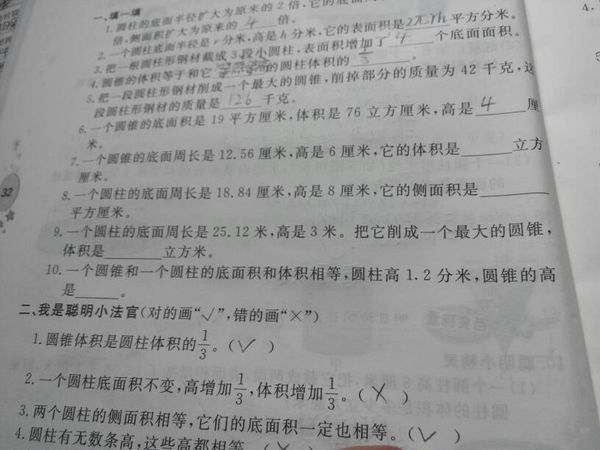 一、填一填
1.圆柱的底面半径扩大为原来的2倍,它的底
倍,侧面积扩大为原来的 4 倍。
2.一个圆柱底面半径是r分米,高是h分米,它的表面积是2πrh平方分米。
3.把一根圆柱形钢材截成3段小圆柱,表面积增加了 4 个底面面积。
4.圆锥的体积等于和它 的圆柱体积的
5.把一段圆柱形钢材削成一个最大的圆锥,削掉部分的质量为42千克,这
段圆柱形钢材的质量是 126 千克。
6.一个圆锥的底面积是19平方厘米,体积是76立方厘米,高是 4 厘
米。
7.一个圆锥的底面周长是12.56厘米,高是6厘米,它的体积是______立方
厘米。
8.一个圆柱的底面周长是18.84厘米,高是8厘米,它的侧面积是______
平方厘米。
9.一个圆柱的底面周长是25.12米,高是3米。把它削成一个最大的圆锥,
体积是______立方米。
10.一个圆锥和一个圆柱的底面积和体积相等,圆柱高1.2分米,圆锥的高
是____。
32
二、我是聪明小法官(对的画“√”,错的画“×”)
1.圆锥体积是圆柱体积的1/3。(√)
2.一个圆柱底面积不变,高增加1/3,体积增加1/3。(×)
3.两个圆柱的侧面积相等,它们的底面积一定也相等。(√)
4.圆柱有无数条高,这些高都相等。